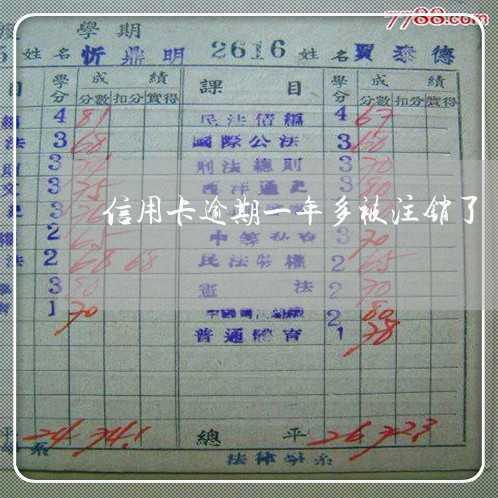 7788.com
學期
姓名 忻鼎明 2616 姓名 賈泰德
目 學分 成績 課目 學分 成績
分數 扣分 實得 分數 扣分 實得
4 81 民法債編 4 67
法 3 68 國際公法 3 60
3 刑法總則 3 70
3 75 西洋通史 3 80
信用卡逾期一年多被注销了
2 65 3 70
法 2 68 68 民法物權 2 65
3 80 憲法 2 70
1 70 2 80
普通體育 1 78
平 24 74.1 總平 26 72.3
系 法律學系